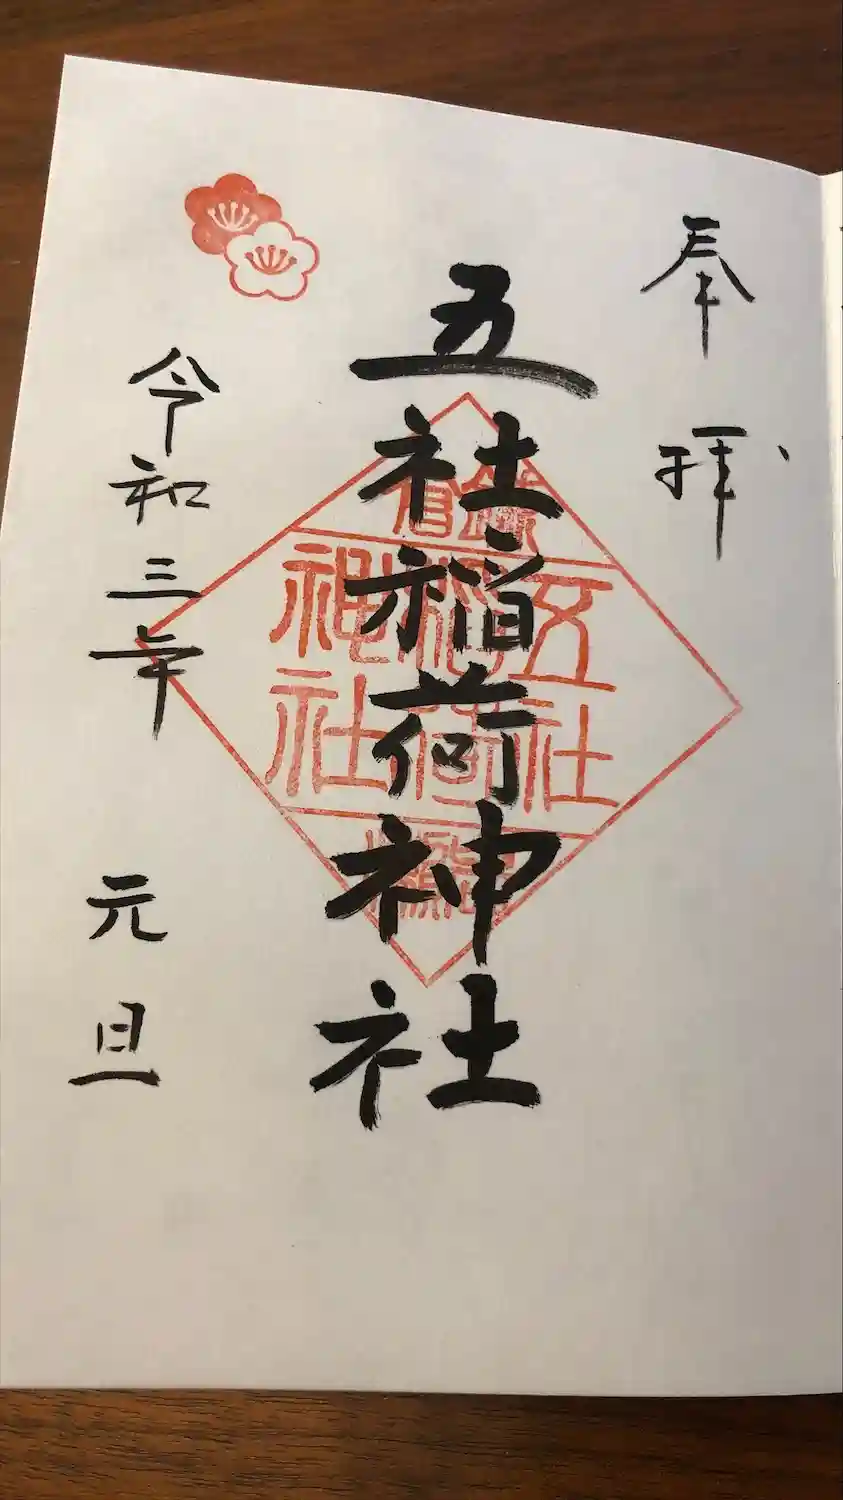 奉拝
五社稲荷神社
令和三年 元旦
五社
稲荷
神社